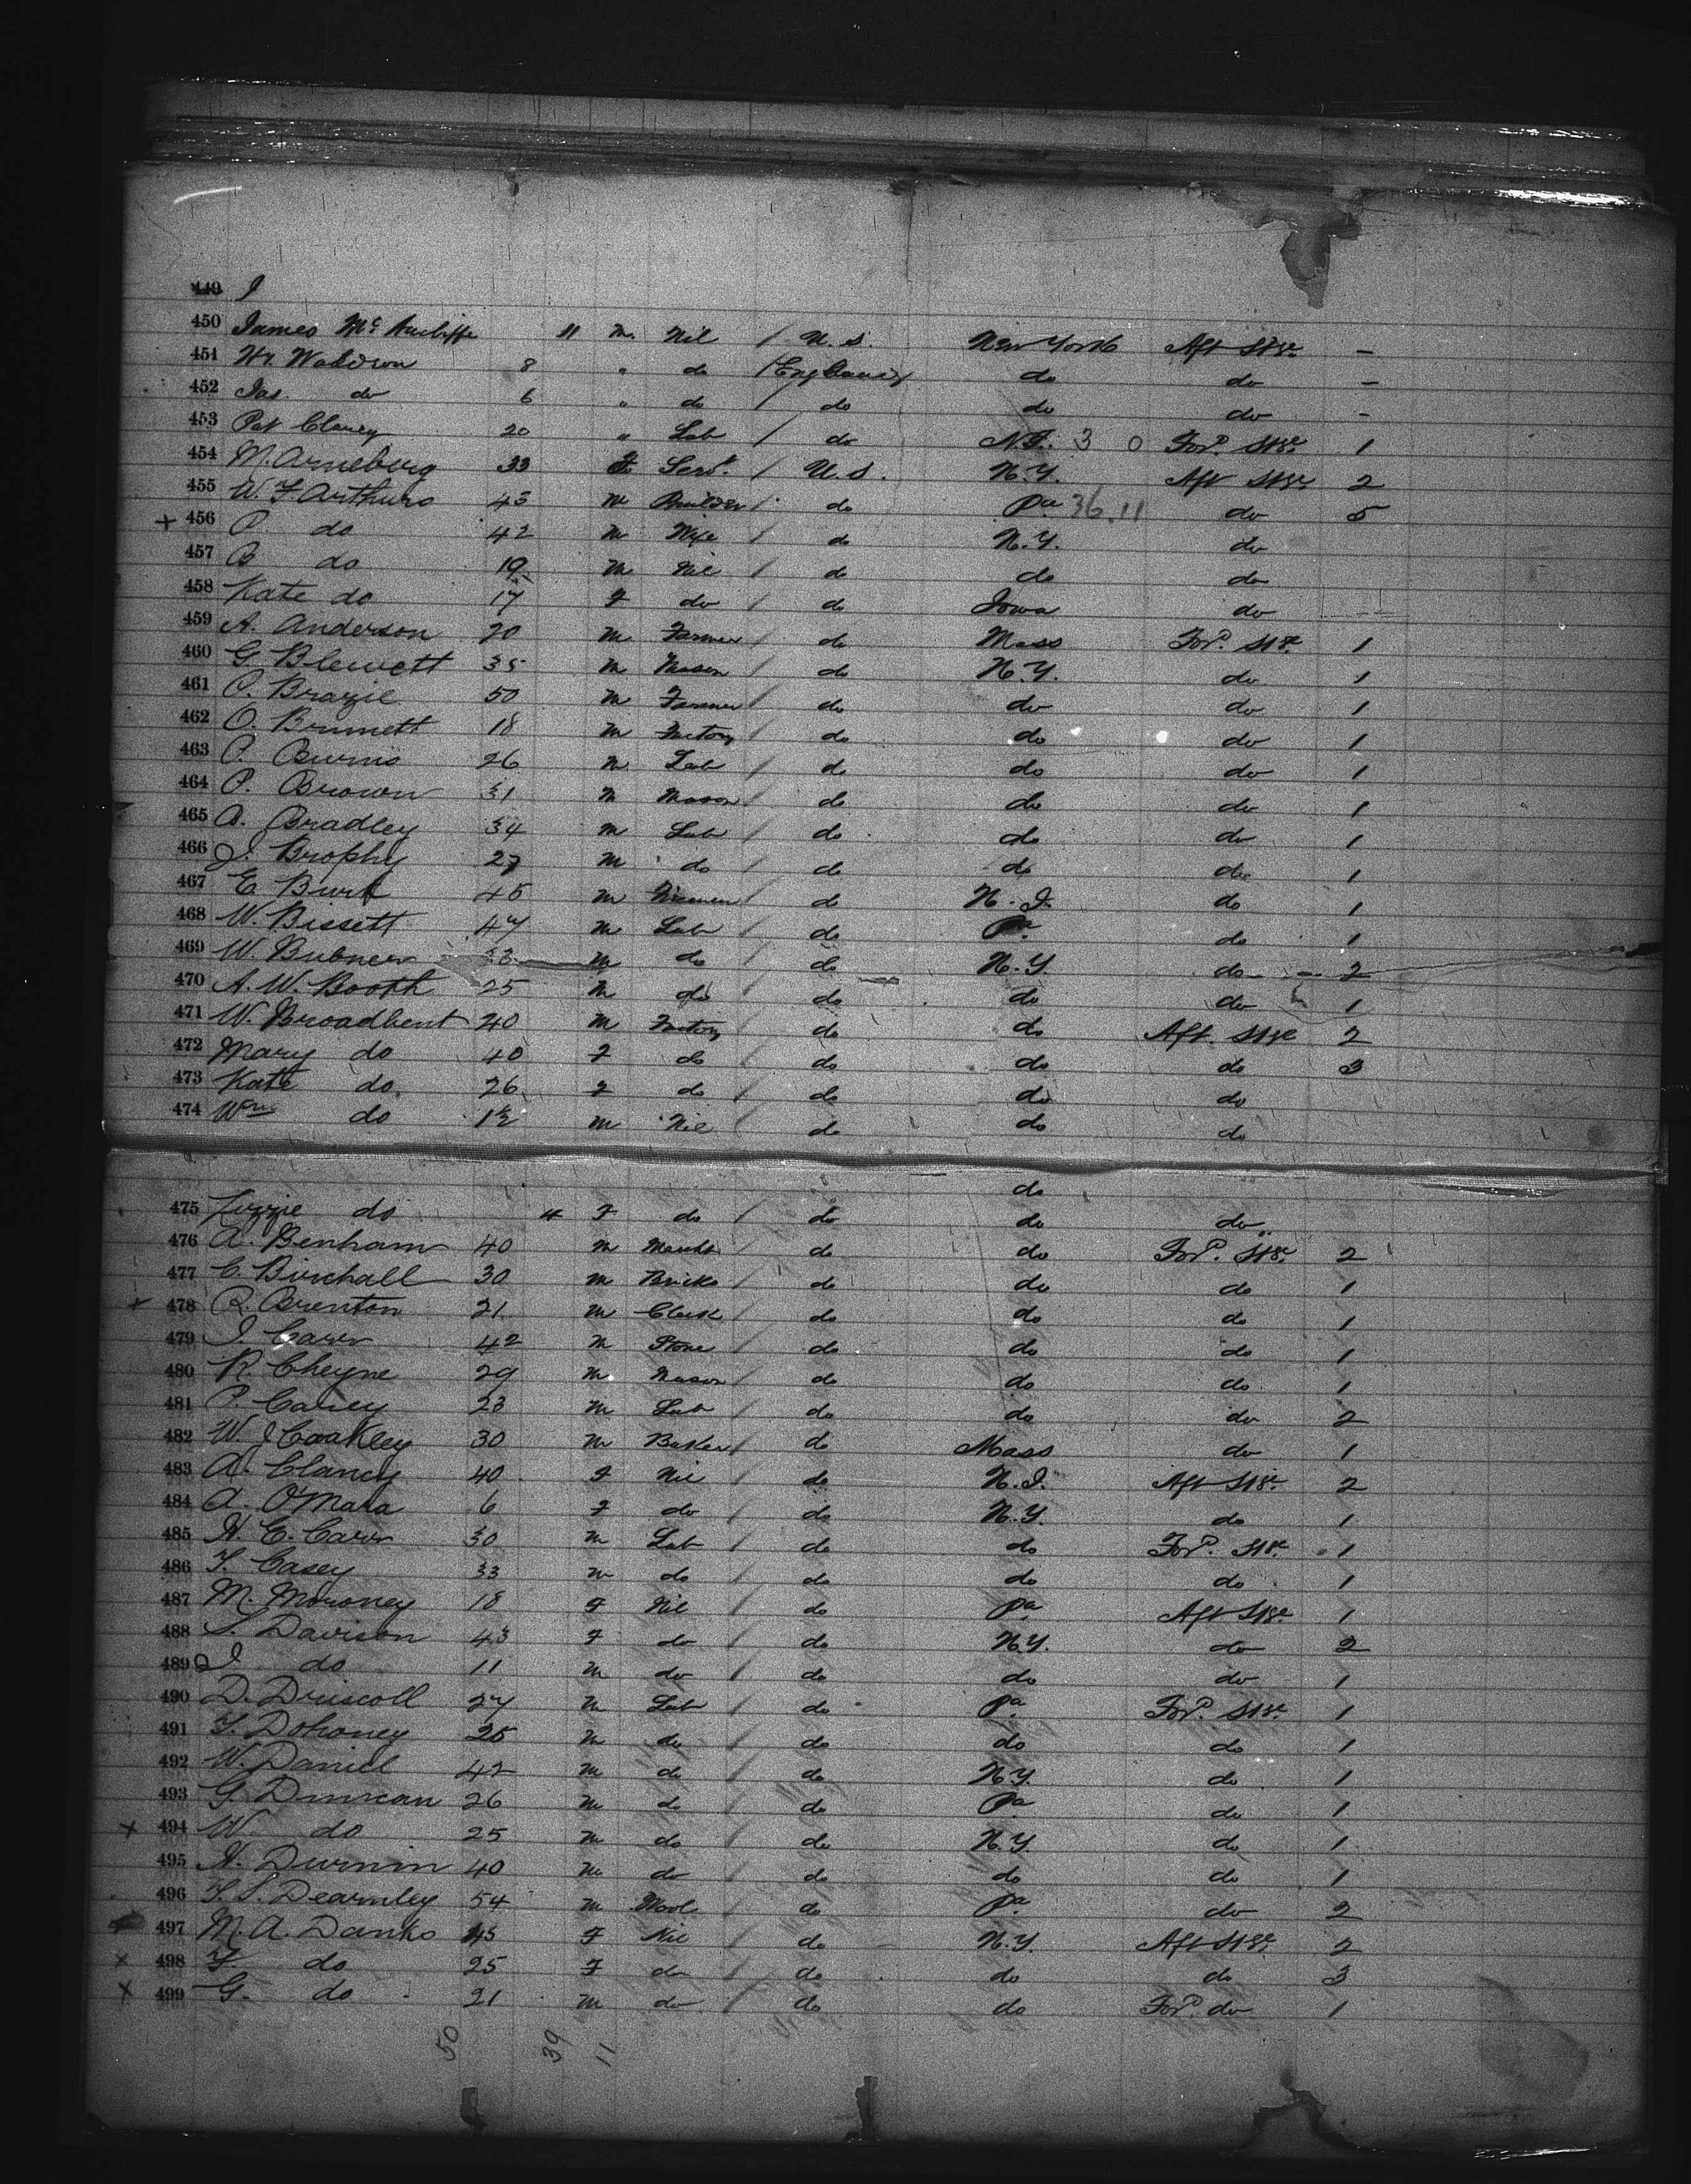 449 J
450 James McAuliffe 11 M. Nil / U.S. New York Aft Stge –
451 Hy. Waldron 8 " do / England do do –
452 Jas. do 6 " do / do do do –
453 Pat Clancy 20 " Lab / do N.J. 3 0 For'd. Stge. 1
454 M. Arneburg 33 F Servt. / U.S. N.Y. Aft Stge 2
455 W. F Arthurs 43 M Builder / do Pa 36.11 do 5
+ 456 P. do 42 M Wife / do N.Y. do
457 B do 19 M Nil / do do do
458 Kate do 17 F do / do Iowa do
459 A. Anderson 20 M Farmer / do Mass For'd. Stge. 1
460 G. Blewett 35 M Mason / do N.Y. do 1
461 P. Brazil 50 M Farmer / do do do 1
462 O. Brunett 18 M Factory / do do do 1
463 P. Burns 26 M Lab / do do do 1
464 P. Brown 31 M Mason / do do do 1
465 A. Bradley 34 M Lab / do do do 1
466 J. Brophy 27 M do / do do do 1
467 E Burk 45 M do N.J. do 1
468 W. Bissett 47 M Lab / do Pa. do 1
469 W. Bubner 33 M do do N.Y. do 2
470 A. W. Booth 25 M do do do do 1
471 W. Broadbent 40 M Factory / do do Aft. Stge 2
472 Mary do 40 F do / do do do 3
473 Kate do 26 F do / do do do
474 Wm do 1½ M Nil / do do do
do
475 Lizzie do 4 F do / do do do
476 A. Benham 40 M Mercht. / do do For'd. Stge. 2
477 C. Birchall 30 M Brick / do do do 1
+ 478 R. Brenton 21 M Clerk / do do do 1
479 J. Carr 42 M Stone / do do do 1
480 R. Cheyne 29 M Mason / do do do 1
481 P. Casey 23 M Lab / do do do 2
482 W. J Coakley 30 M Baker / do Mass do 1
483 A. Clancy 40 F Nil / do N.J. Aft Stge. 2
484 A. O'Mara 6 F do / do N.Y. do 1
485 H. E. Carr 30 M Lab / do do For'd. Stge. 1
486 T. Casey 33 M do / do do do 1
487 M. Moroney 18 F Nil / do Pa Aft Stge. 1
488 S. Davison 43 F do / do N.Y. do 2
489 J do 11 M do / do do do 1
490 D. Driscoll 27 M Lab / do Pa. For'd. Stge. 1
491 T. Dohoney 25 M do / do do do 1
492 W. Daniel 42 M do / do N.Y. do 1
493 G. Duncan 26 M do / do Pa do 1
+ 494 W. do 25 M do / do N.Y. do 1
495 H. Durnin 40 M do / do do do 1
496 T. S. Dearnley 54 M Wool / do Pa. do 2
+ 497 M. A. Danks 45 F Nil / do N.Y. Aft Stge. 2
x 498 F do 25 F do / do do do 3
x 499 G. do 21 M do / do do For'd. do 1
50 39 11